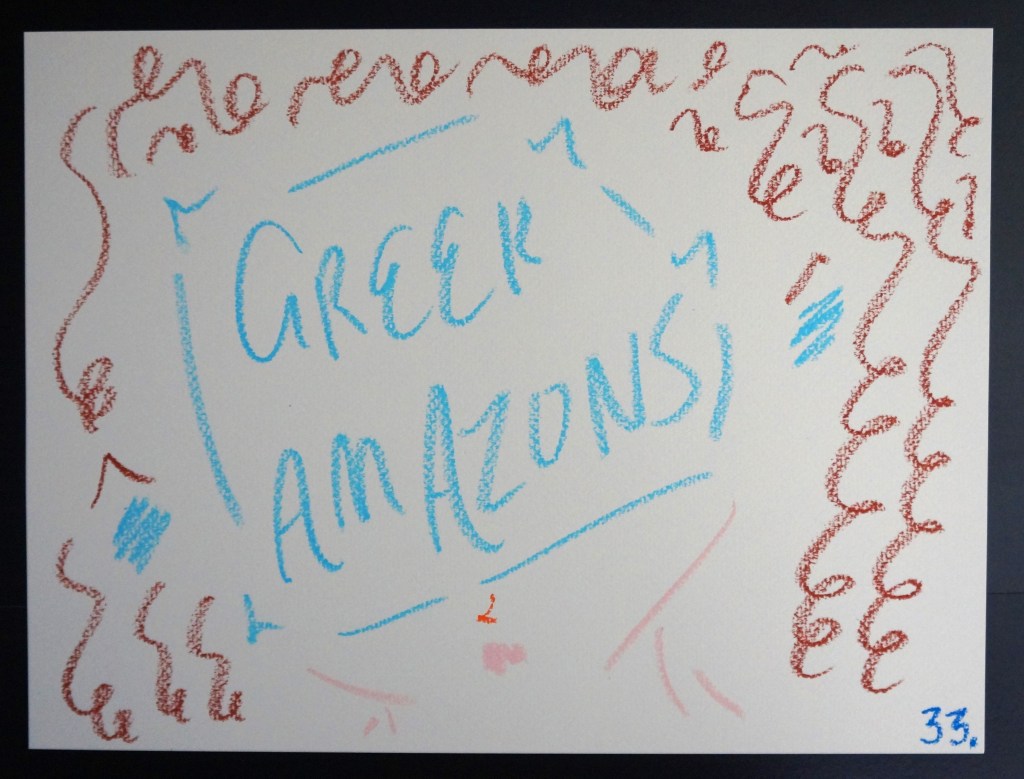 GREEK
AMAZONS
33.